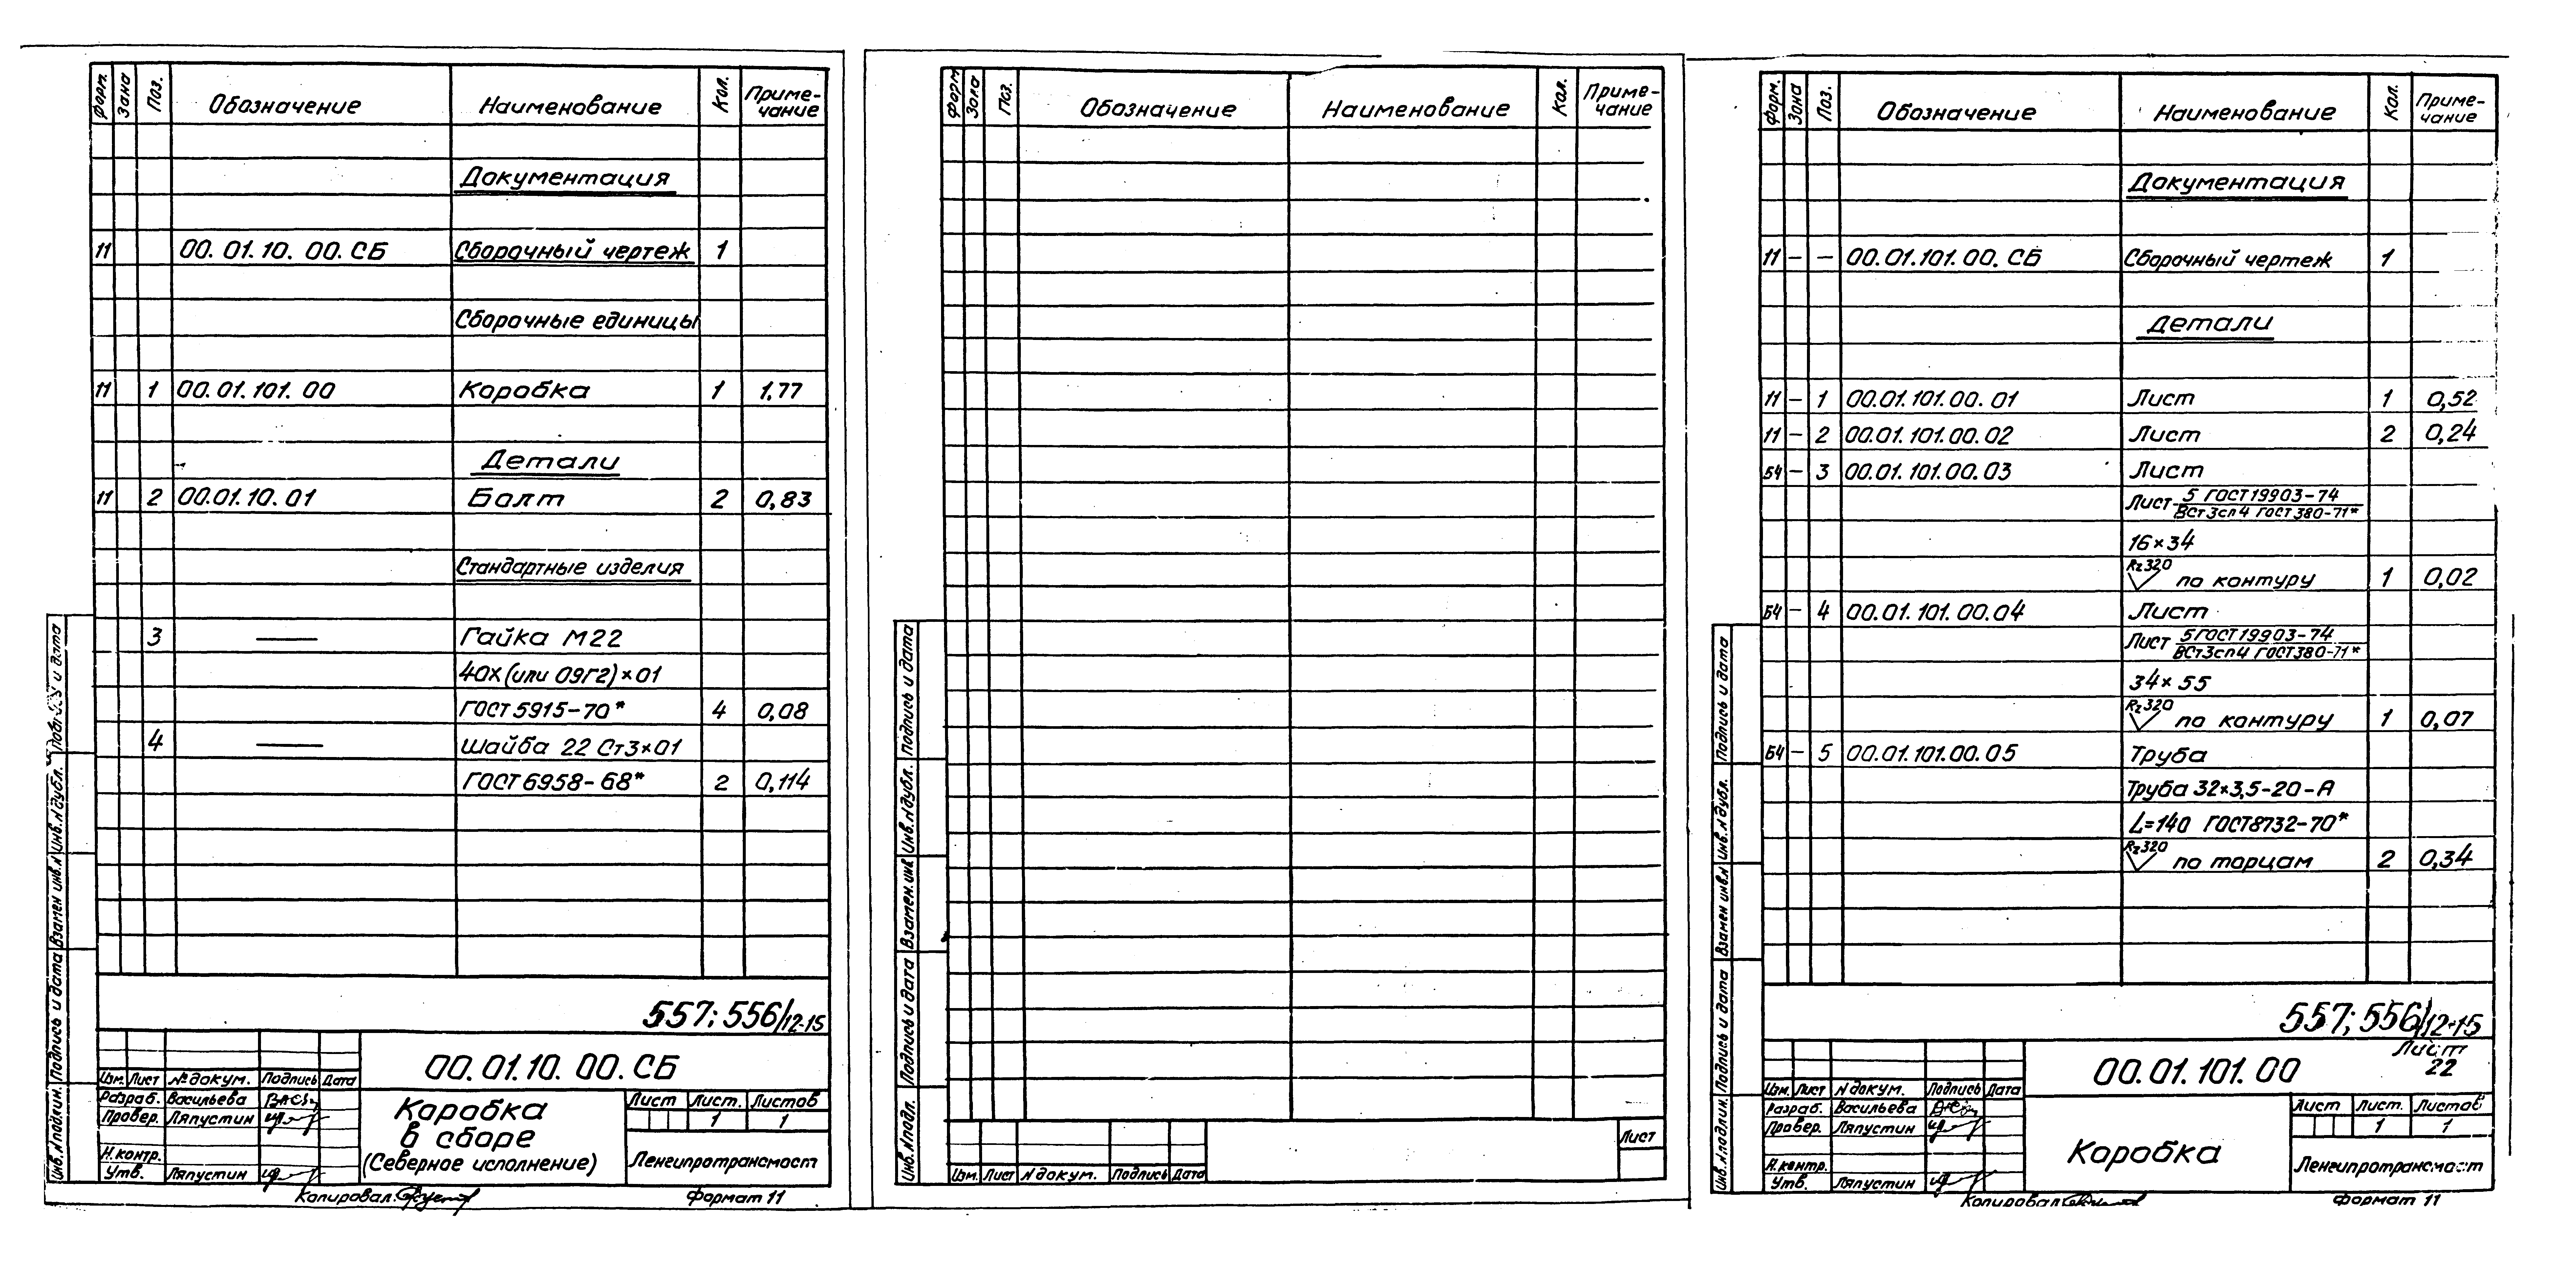 Форм. Зона Поз. Обозначение Наименование Кол. Приме-
чание
Документация
11 00.01.10.00.СБ Сборочный чертеж 1
Сборочные единицы
11 1 00.01.101.00 Коробка 1 1,77
Детали
11 2 00.01.10.01 Болт 2 0,83
Стандартные изделия
3 — Гайка М22
40х (или 09Г2)×01
ГОСТ 5915-70* 4 0,08
4 — Шайба 22 Ст3×01
ГОСТ 6958-68* 2 0,114
557; 556/12-15
00.01.10.00.СБ
Изм. Лист № докум. Подпись Дата
Разраб. Васильева
Провер. Ляпустин
Н.контр.
Утв. Ляпустин
Коробка
в сборе
(Северное исполнение)
Лист Лист. Листов
1 1
Ленгипротрансмост
Копировал:
Формат 11
Инв.№подлин. Подпись и дата Взамен инв.№ Инв.№дубл. Подпись и дата
Форм Зона Поз. Обозначение Наименование Кол. Приме-
чание
Инв.№подл. Подпись и дата Взамен.инв№ Инв.№дубл. Подпись и дата
Изм. Лист N докум. Подпись Дата
Лист
Форм. Зона Поз. Обозначение Наименование Кол. Приме-
чание
Документация
11 – – 00.01.101.00.СБ Сборочный чертеж 1
Детали
11 – 1 00.01.101.00.01 Лист 1 0,52
11 – 2 00.01.101.00.02 Лист 2 0,24
Б4 – 3 00.01.101.00.03 Лист
Лист 5 ГОСТ 19903-74
ВСт3сп4 ГОСТ 380-71*
16×34
Rz320 по контуру 1 0,02
Б4 – 4 00.01.101.00.04 Лист
Лист 5 ГОСТ 19903-74
ВСт3сп4 ГОСТ 380-71*
34×55
Rz320 по контуру 1 0,07
Б4 – 5 00.01.101.00.05 Труба
Труба 32×3,5-20-А
L=140 ГОСТ 8732-70*
Rz320 по торцам 2 0,34
557; 556/12-15
00.01.101.00
Лист
22
Изм. Лист N докум. Подпись Дата
Разраб. Васильева
Провер. Ляпустин
Н.контр.
Утв. Ляпустин
Коробка
Лист Лист. Листов
1 1
Ленгипротрансмост
Копировал:
Формат 11
Инв.№подлин. Подпись и дата Взамен инв.№ Инв.№дубл. Подпись и дата